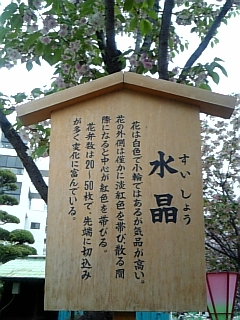 すいしょう
水晶
花は白色で小輪ではあるが気品が高い。
花の外側は僅かに淡紅色を帯び散る間
際になると中心が紅色を帯びる。
花弁数は20～50枚で、先端に切込み
が多く変化に富んでいる。